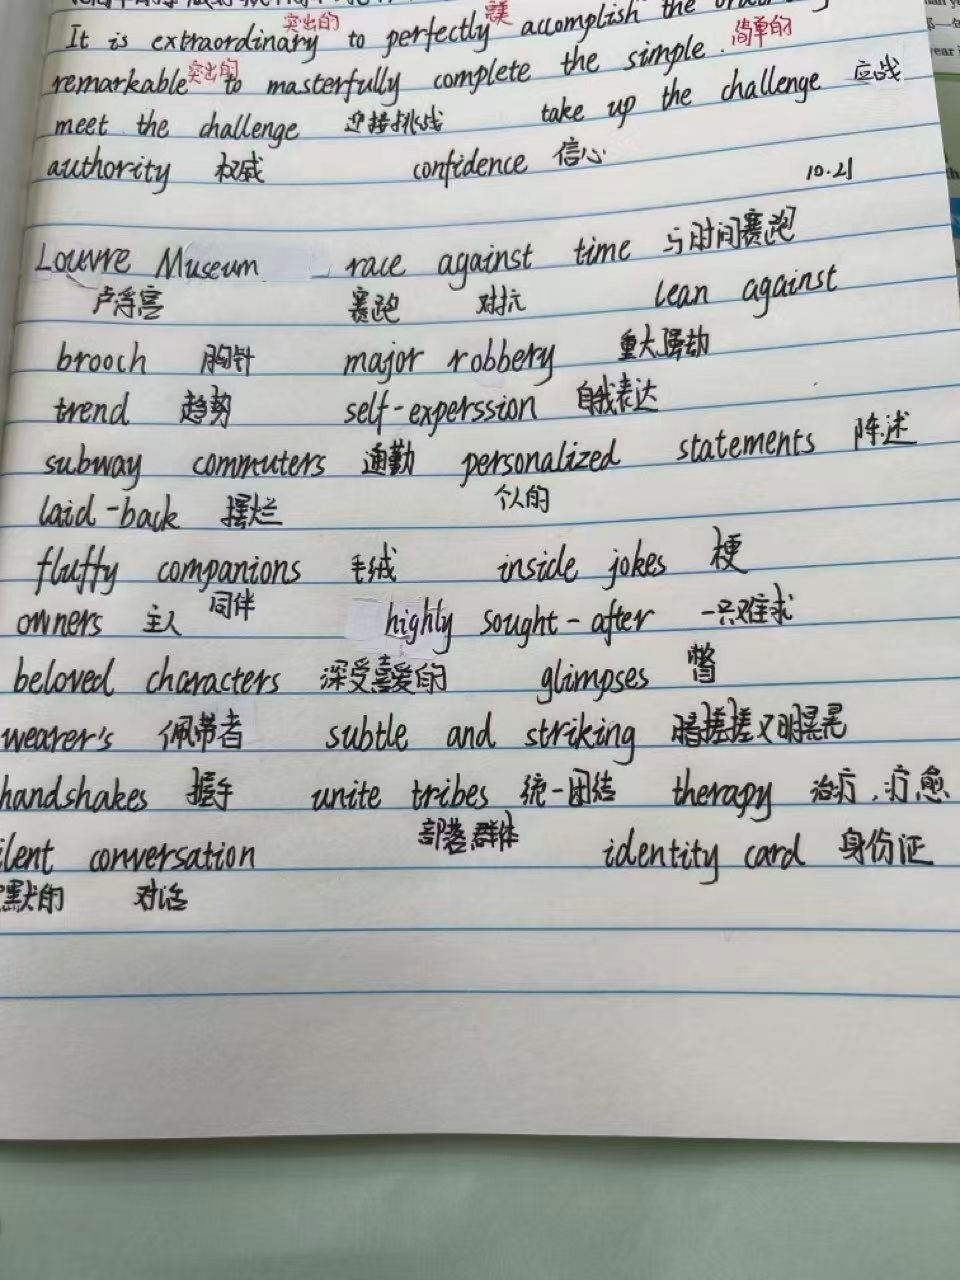 突出的 完美
It is extraordinary to perfectly accomplish the
突出的 简单的
remarkable to masterfully complete the simple.
meet the challenge 迎接挑战 take up the challenge 应战
authority 权威 confidence 信心
10.21
Louvre Museum race against time 与时间赛跑
卢浮宫 赛跑 对抗 lean against
brooch 胸针 major robbery 重大强劫
trend 趋势 self-experssion 自我表达
subway commuters 通勤 personalized statements 陈述
laid-back 摆烂 个人的
fluffy companions 毛绒 inside jokes 梗
owners 主人 同伴 highly sought-after 一只难求
beloved characters 深受喜爱的 glimpses 瞥
wearer's 佩带者 subtle and striking 暗搓搓又明晃晃
handshakes 握手 unite tribes 统一团结 therapy 治疗，疗愈
部落群体
ilent conversation identity card 身份证
默的 对话